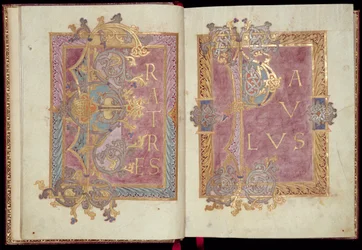 FR
A
TR
ES
PA
V
LVS